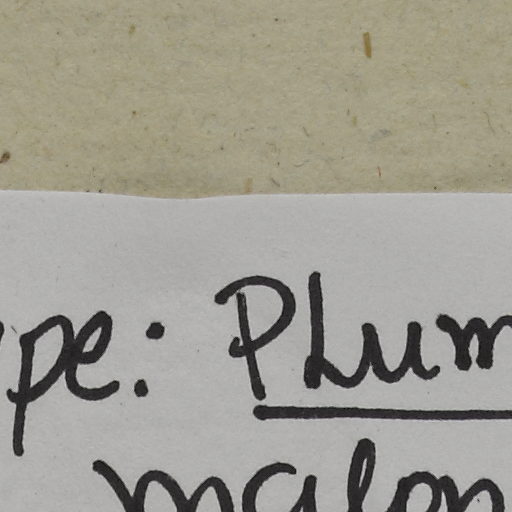 ype: Plum
malon